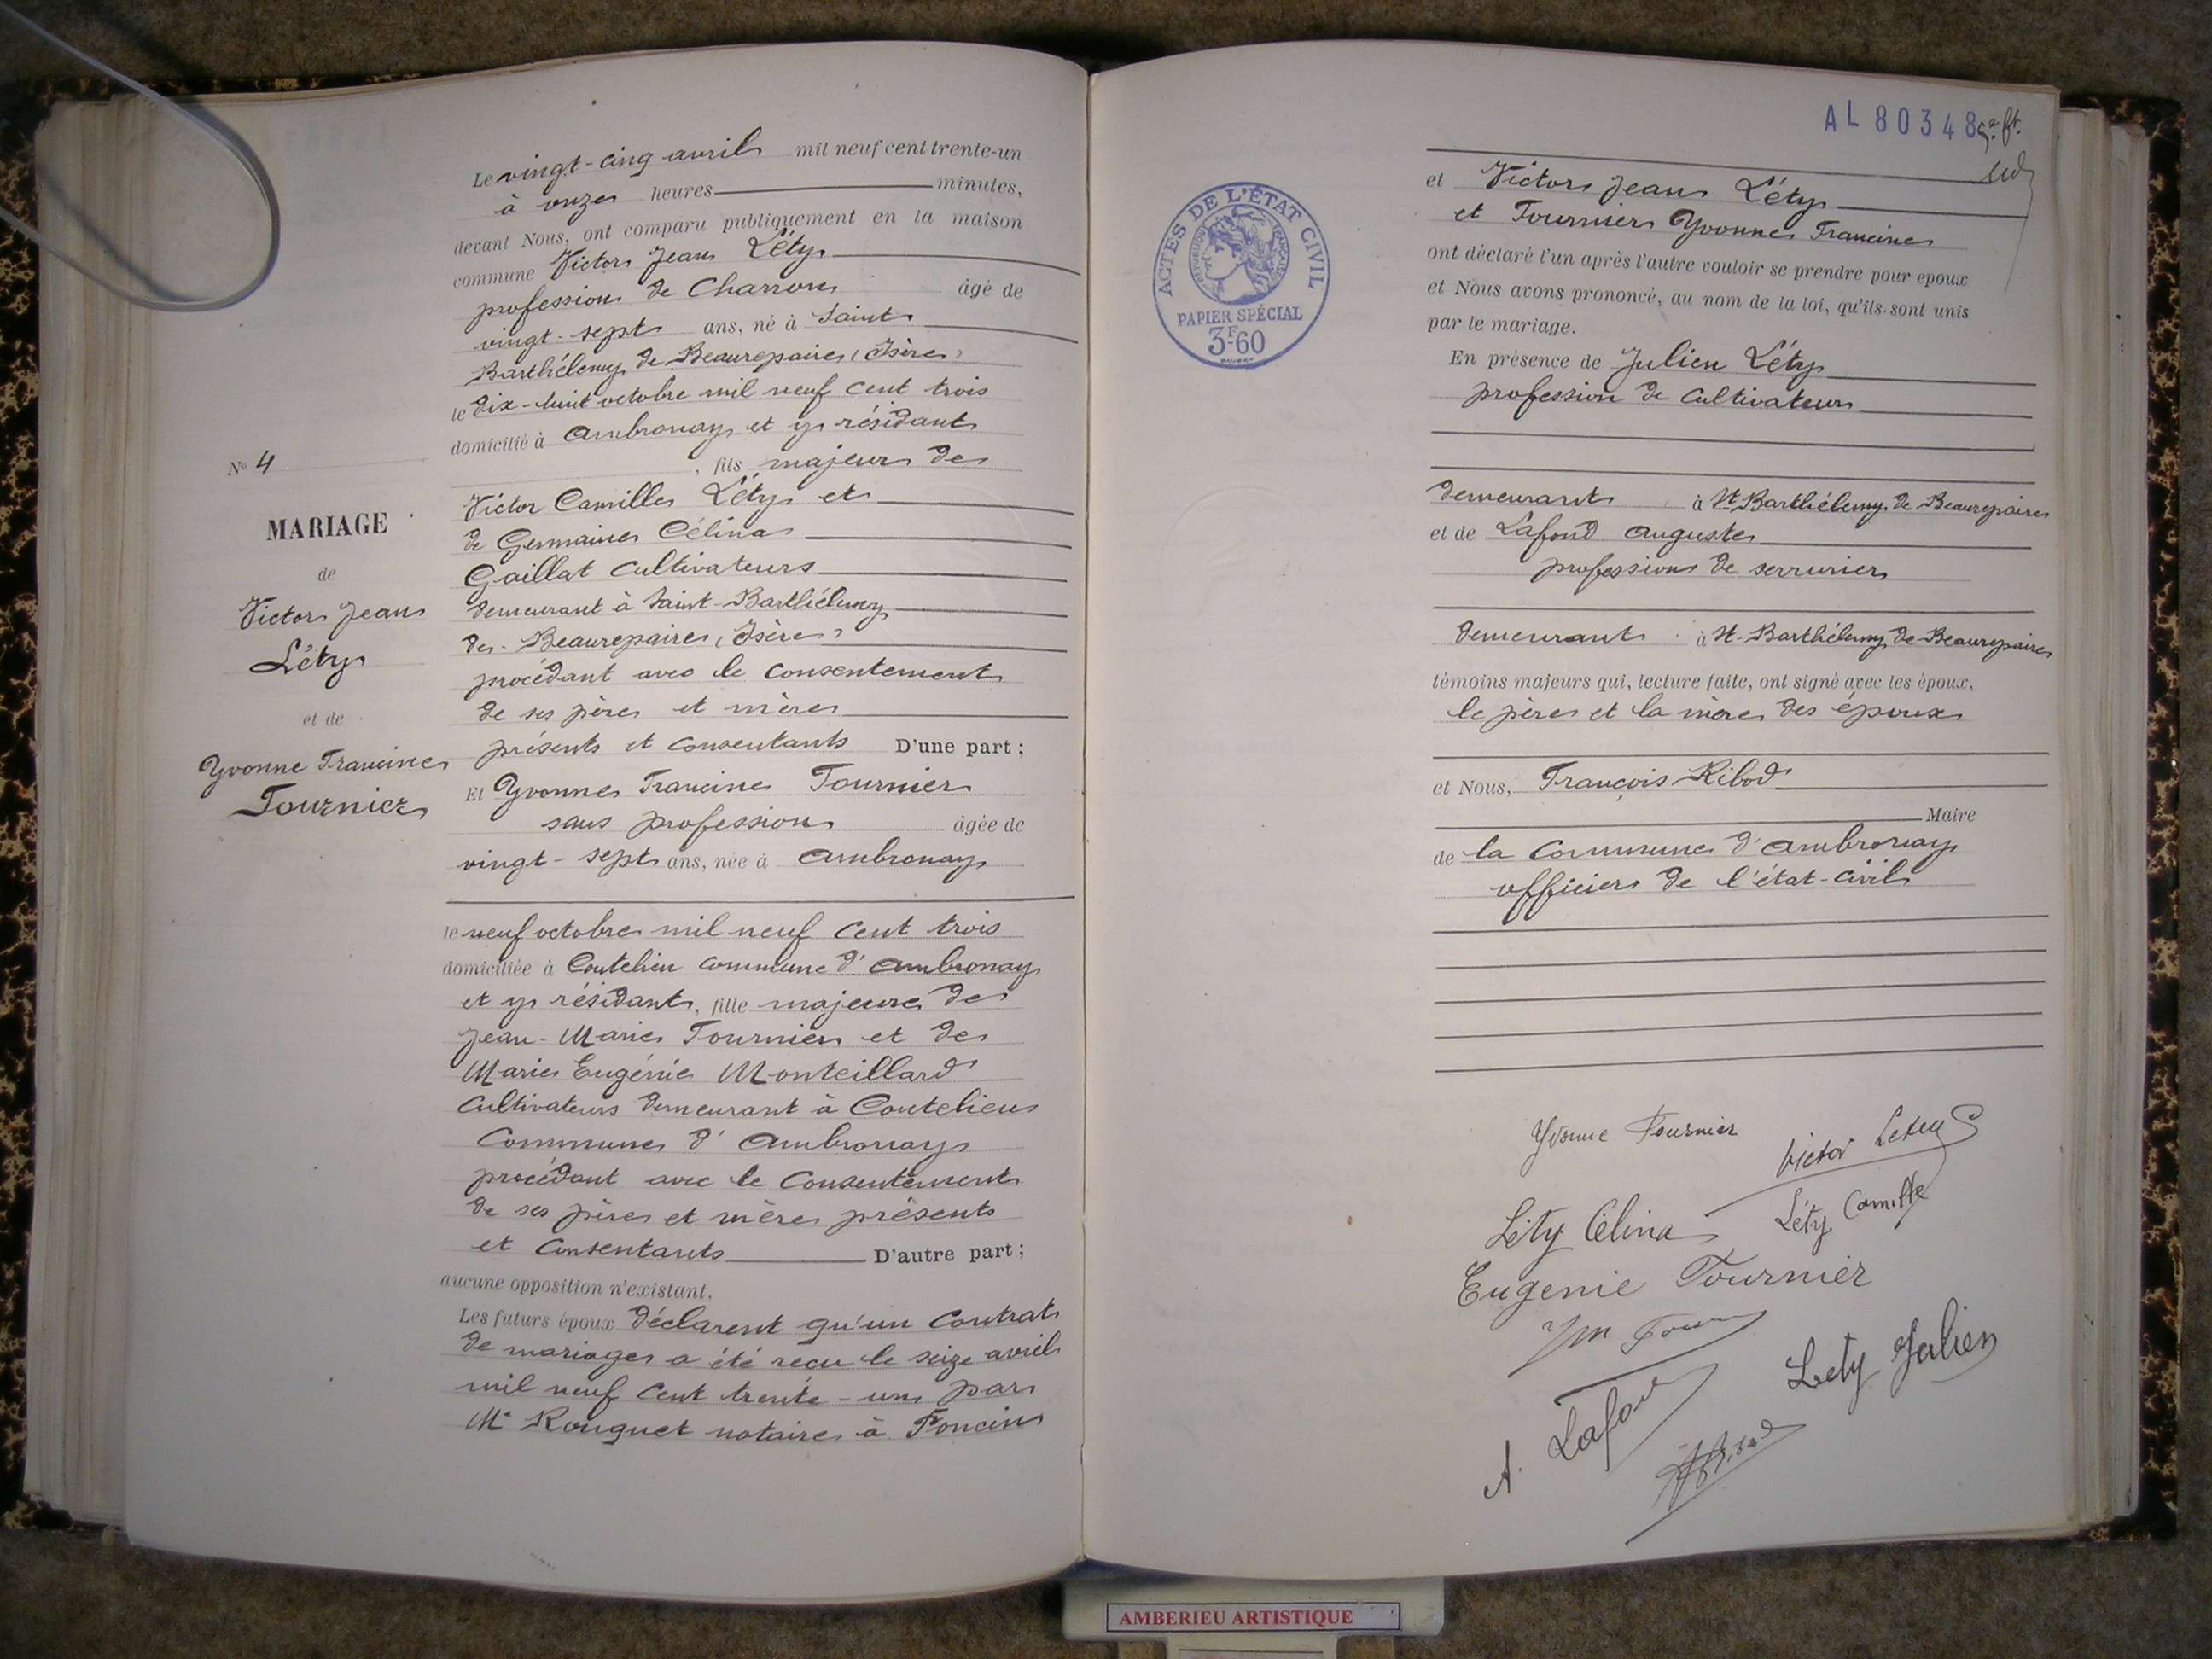 N° 4
MARIAGE
de
Victor Jean
Léty
et de
Yvonne Francine
Tournier
Le vingt-cinq avril mil neuf cent trente-un
à onze heures minutes,
devant Nous, ont comparu publiquement en la maison
commune Victor Jean Léty
profession de Charron âgé de
vingt-sept ans, né à Saint
Barthélemy de Beaurepaire (Isère)
le dix-huit octobre mil neuf cent trois
domicilié à Ambronay et y résidant
, fils majeur de
Victor Camille Léty et
de Germaine Célina
Gaillat cultivateurs
demeurant à Saint-Barthélemy
de-Beaurepaire (Isère)
procédant avec le consentement
de ses père et mère
présents et consentants D'une part ;
Et Yvonne Francine Tournier
sans profession âgée de
vingt-sept ans, née à Ambronay
le neuf octobre mil neuf cent trois
domiciliée à Coutelieu commune d'Ambronay
et y résidant, fille majeure de
Jean-Marie Tournier et de
Marie Eugénie Monteillard
cultivateurs demeurant à Coutelieu
Commune d'Ambronay
procédant avec le consentement
de ses père et mère présents
et consentants D'autre part ;
aucune opposition n'existant,
Les futurs époux déclarent qu'un contrat
de mariage a été reçu le seize avril
mil neuf cent trente-un par
Me Rouquet notaire à Poncin
ACTES DE L'ÉTAT CIVIL
RÉPUBLIQUE FRANÇAISE
PAPIER SPÉCIAL
3F60
AL 80348
et Victor Jean Léty
et Tournier Yvonne Francine
ont déclaré l'un après l'autre vouloir se prendre pour époux
et Nous avons prononcé, au nom de la loi, qu'ils sont unis
par le mariage.
En présence de Julien Léty
profession de cultivateur
demeurant à St Barthélemy de Beaurepaire
et de Lafond Auguste
profession de serrurier
demeurant à St-Barthélemy de Beaurepaire
témoins majeurs qui, lecture faite, ont signé avec les époux,
le père et la mère des époux
et Nous, François Ribod
Maire
de la Commune d'Ambronay
officier de l'état-civil
Yvonne Tournier
Victor Lety
Léty Célina
Léty Camille
Eugenie Tournier
Lety Julien
A. Lafond
AMBERIEU ARTISTIQUE